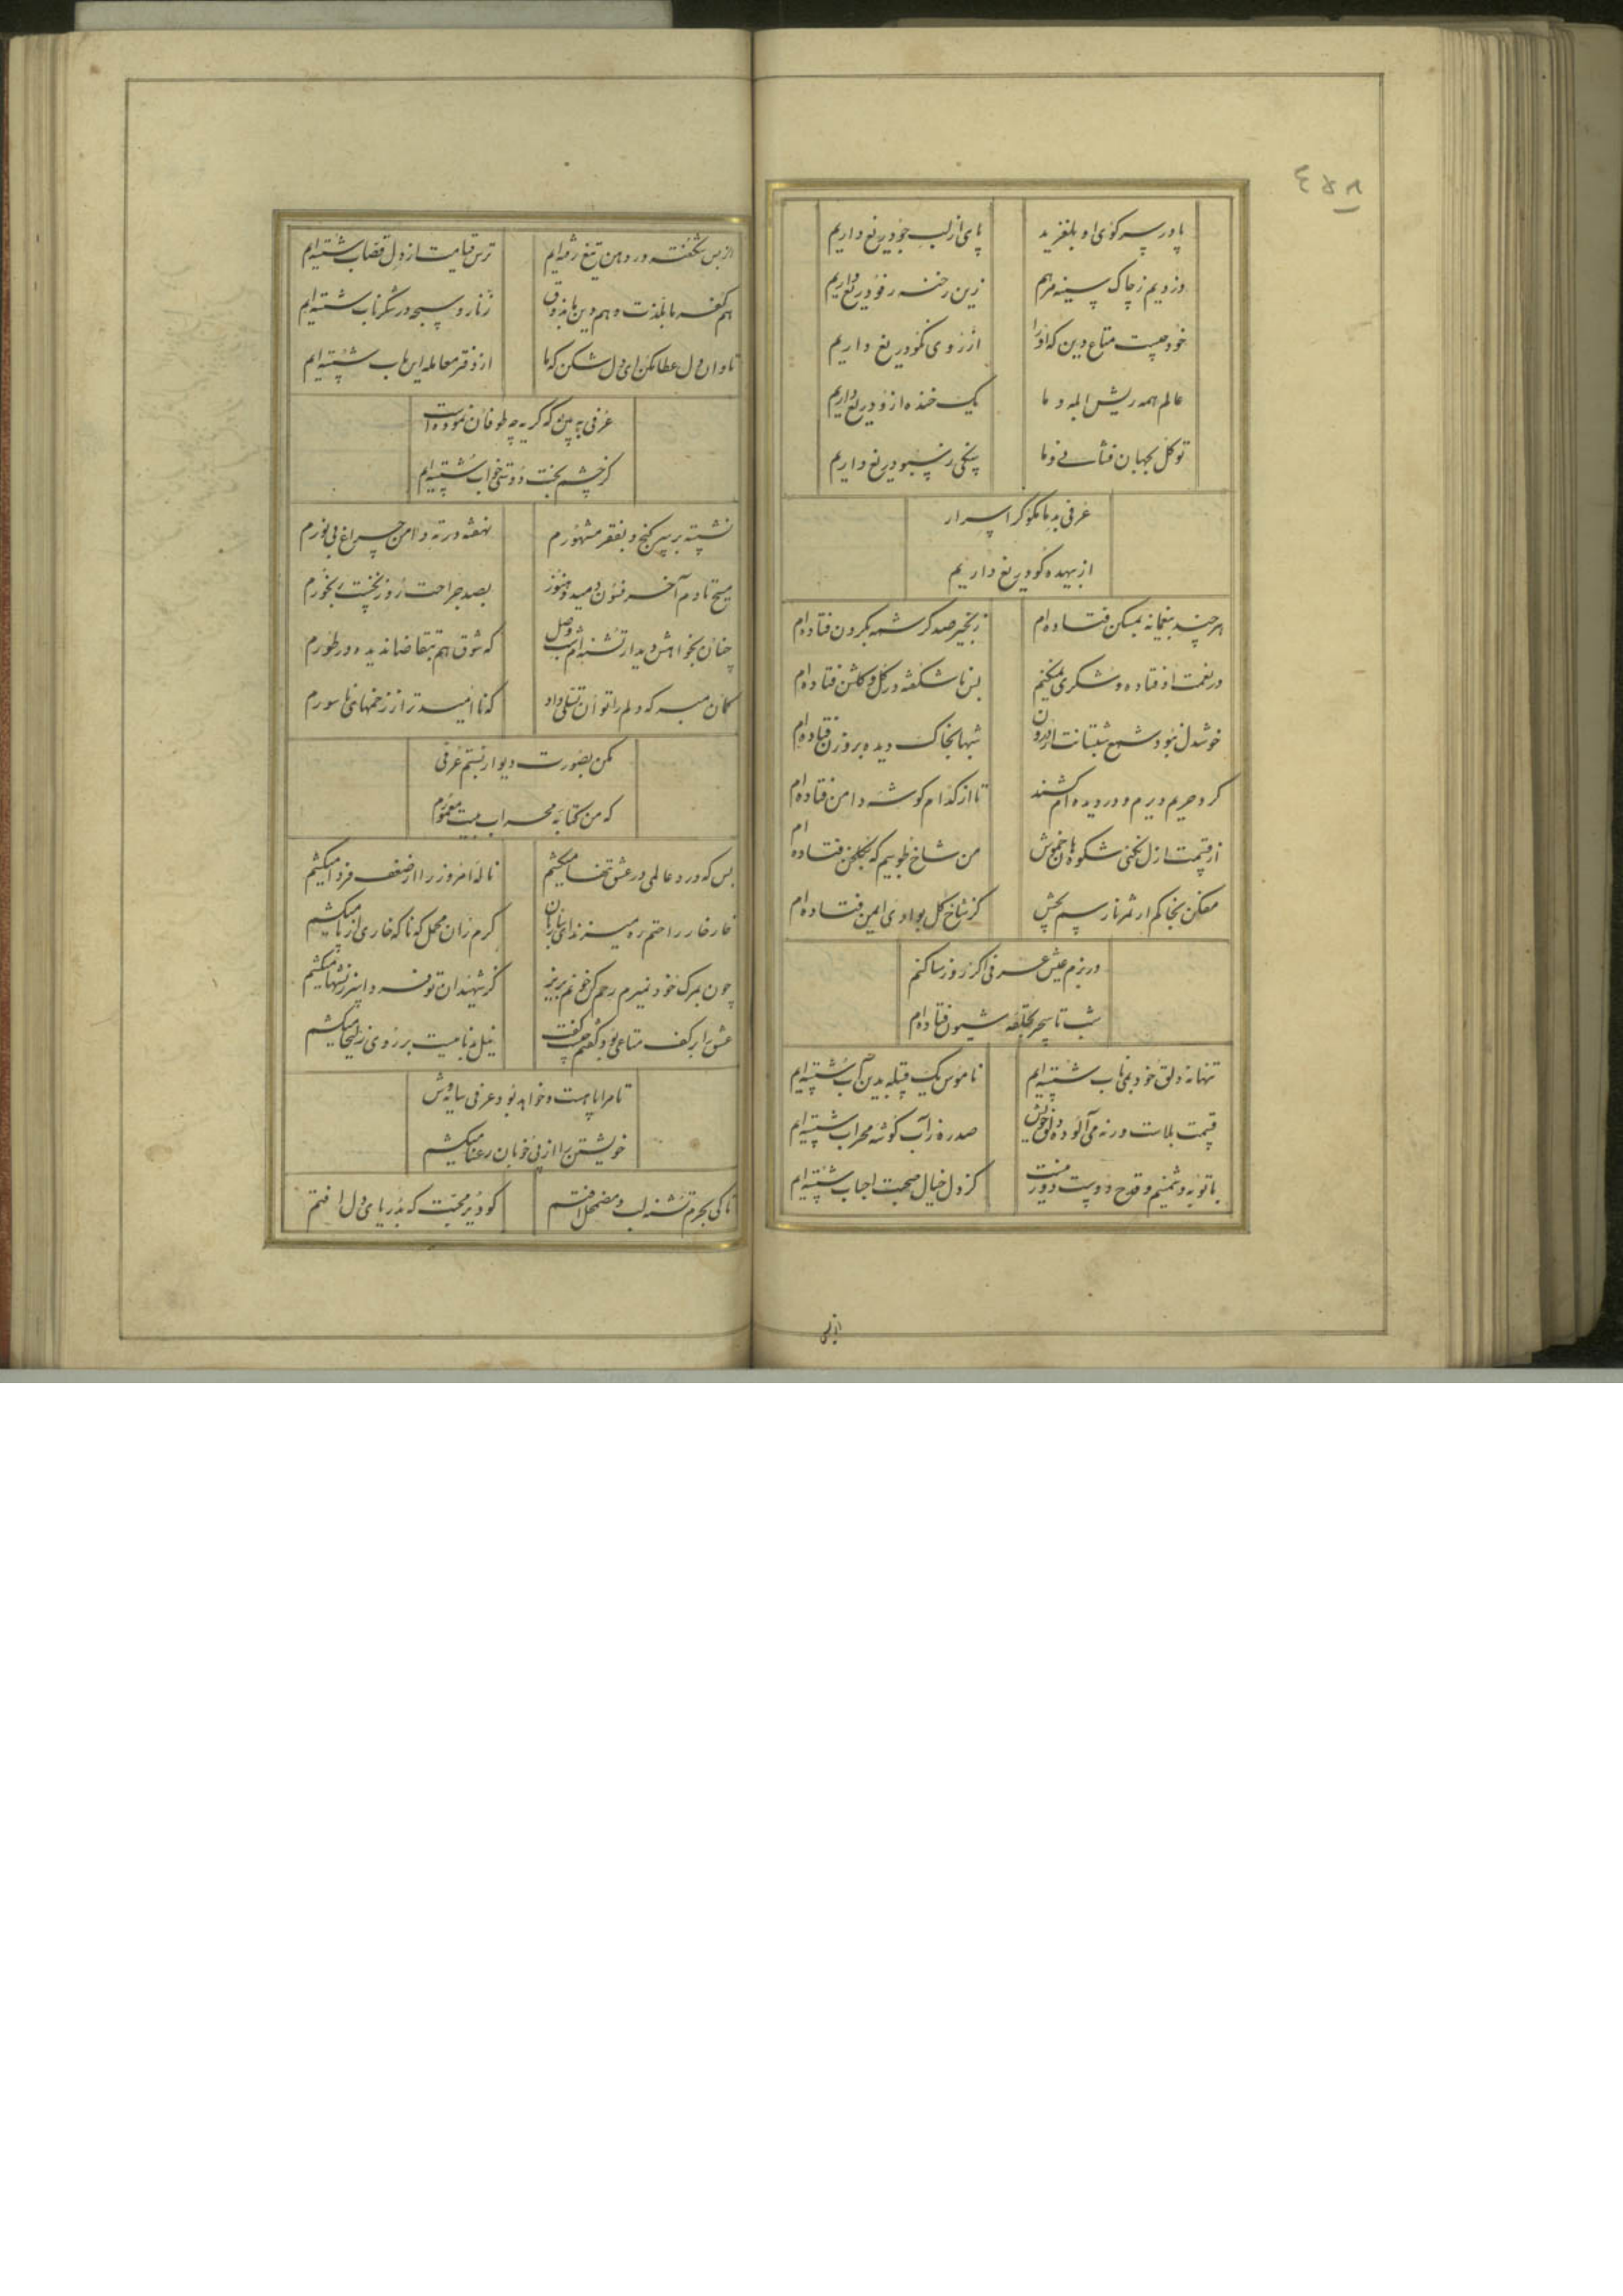 ۴۵۸
پا در سر کوی او بلغزید
پای از لب جو دریغ داریم
دزدیم ز چاک سینه مرهم
زین رخنه رفو دریغ داریم
خود چیست متاع دین که او را
از روی نکو دریغ داریم
عالم همه ریش الم و ما
یک خنده ازو دریغ داریم
تو کل بجهان فشانی و ما
ز سبو دریغ داریم
عرفی به ما مکو کز اسرار
از بیهده کو دریغ داریم
هر چند بمسکن فتاده ام
زنجیر صد کرشمه بکردن فتاده ام
در نعمت اوفتاده و شکری نمیکنم
بس ناشکفته در کل و کلشن فتاده ام
خوشدل نبود شمع شبستانت از درون
شبها بخاک دیده بروزن فتاده ام
کرد حریم دیرم و در دیده ام کشند
تا از کدام کوشه دامن فتاده ام
از قیمت ازل نکنی شکوه هان خموش
من شاخ طوبیم که بکلخن فتاده ام
مفکن بخاکم ار ثمر نارسم بچش
کز شاخ کل بوادی ایمن فتاده ام
در بزم عیش عرفی اگر روز سا کنم
شب تا سحر بحلقه شیون فتاده ام
تنها نه دلق خود بمی ناب شسته ایم
ناموس یک قبیله بدین آب شسته ایم
قیمت بلاست ورنه می آلوده دلق خویش
صد ره ز آب کوشه محراب شسته ایم
با توبه دشمنیم و قدح دوست دور نیست
کز دل خیال صحبت احباب شسته ایم
از بس
از بس شکفته در دهن تیغ رفته ایم
ترس قیامت از دل قصاب شسته ایم
هم کفر ما بلذت و هم دین ما بذوق
زنار و سبحه در شکر ناب شسته ایم
تاوان دل عطا مکن ای دل شکن که ما
از دفتر معامله این باب شسته ایم
عرفی به بین که کریه چه طوفان نموده است
کز چشم بخت دوستی خواب شسته ایم
نشسته بر سر کنج و بفقر مشهورم
نهفته در ته دامن چراغ بی نورم
مسیح تا دم آخر فسون دمید و هنوز
بصد جراحت روز نخست رنجورم
چنان بخواهش دیدار تشنه ام شب وصل
که شوق هم بتقاضا ندیده در طورم
کمان مبر که دلم را توان تسلی داد
که ناامیدتر از زخمهای ناسورم
مکن بصورت دیوار نسبتم عرفی
که من کتابه محراب بیت معمورم
بس که درد عالمی در عشق تنها میکشم
ناله امروز را از ضعف فردا میکشم
خار خار راحتم ره میزند ای ساربان
کرم ران محمل که ناکه خاری از پا میکشم
چون بمرک خود نمیرم رحم کن خونم بریز
کز شهیدان تو فردا سرزنشها میکشم
عشق را بر کف متاعی بود کفتم چیست گفت
نیل بدنامیست بر روی زلیخا میکشم
تا مرا پا هست و خواهد بود عرفی سایه وش
خویشتن را از پی خوبان رعنا میکشم
تا کی بحرم تشنه لب و مضمحل افتم
کو دیر محبت که بدریای دل افتم